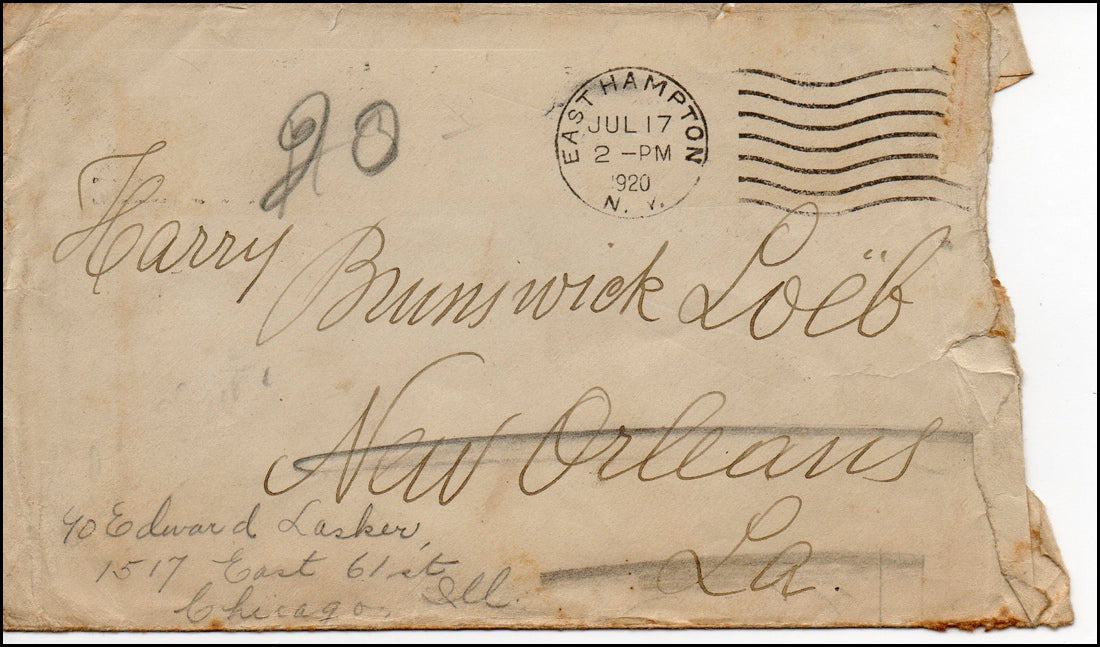 90
EAST HAMPTON
JUL 17
2 – PM
1920
N. Y.
Harry Brunswick Loëb
New Orleans
La.
℅ Edward Lasker,
1517 East 61 st
Chicago, Ill.